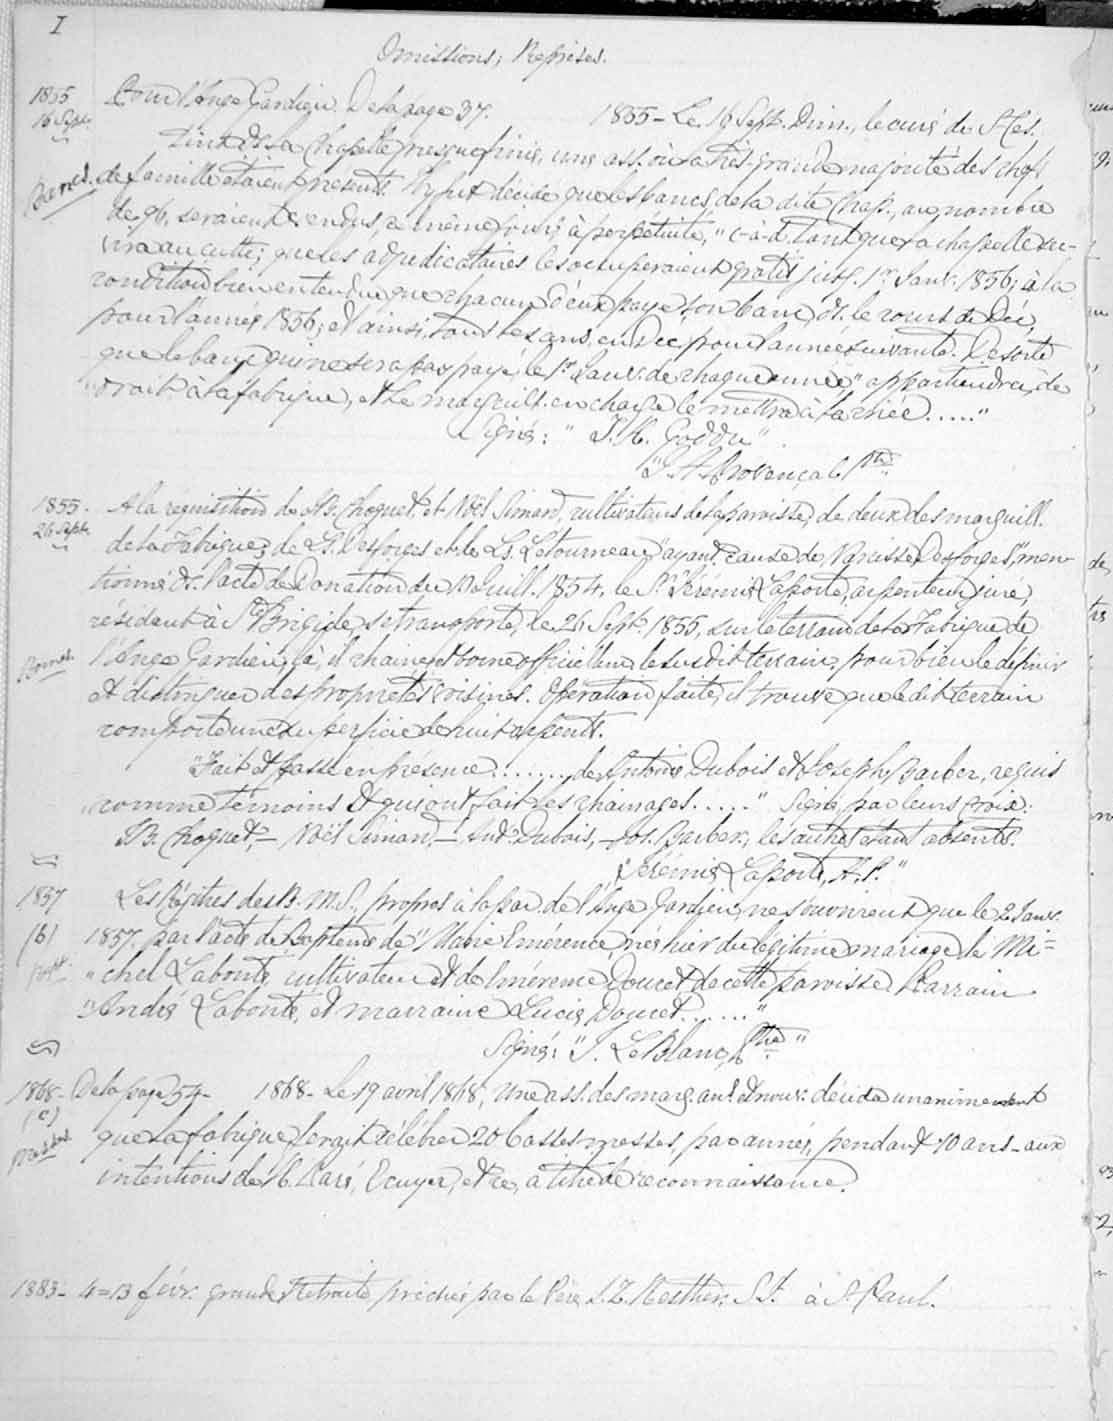 I
Omissions, Reprises.
1855 Pour l'Ange Gardien. De la page 37. 1855 - Le 16 Sept. Dim., le curé de St Cés.
16 Sept. tint ds sa Chapelle presque finie, une ass. où la très-grande majorité des chefs
Bancs. de famille étaient présents. Il y fut décidé que les bancs, de la dite Chap., au nombre
de 96, seraient vendus, ce même jour, "à perpétuité," c-à-d. tant que la chapelle ser-
vira au culte; que les adjudicataires les occuperaient gratis jusq. 1er Janv. 1856; à la
condition bien entendue que chacun d'eux paye son banc, ds. le cours de Déc.
pour l'année 1856; et ainsi, tous les ans, en Déc. pour l'année suivante. De sorte
que le banc qui ne sera pas payé, le 1er Janv. de chaque année, "appartiendra, de
"droit à la fabrique, et le marguill. en charge le mettra à la criée....."
Signé: "J. H. Goddu"
"J. A. Provençal, Ptre"
1855. A la réquisition de J.B. Choquet, et Noël Simard, cultivateurs de la paroisse, de deux des marguill.
26 Sept. de la Fabrique; de Ls. Desforges et de Ls. Letourneau "ayant cause de Narcisse Desforges", men-
tionné ds. l'acte de Donation du Juill. 1854, le Sr. Jérémie Laporte, arpenteur juré,
résident à Ste Brigide, se transporte, le 26 Sept. 1855, sur le terrain de la Fabrique de
Bornes. l'Ange Gardien; là, il chaine et borne officiellem. le susdit terrain, pour bien le définir
et distinguer des propriétés voisines. Opération faite, il trouve que le dit terrain
comporte une superficie de huit arpents.
"Fait et passé en présence....... de Antoine Dubois et Joseph Barber, requis
"comme témoins et qui ont fait les chainages....." Signé, par leurs croix:
J.B. Choquet, - Noël Simard, - Ant. Dubois, - Jos. Barber; les autres étant absents.
"Jérémie Laporte, A.P."
1857 Les Régitres des B. M. S., propres à la par. de l'Ange Gardien, ne s'ouvrent que le 2 Janv.
(b) 1857. par l'acte de Baptême de "Marie Emérence, née hier du légitime mariage de Mi-
"chel Labonté, cultivateur et de Emérence Doucet de cette paroisse. Parrain
"André Labonté, et marraine Lucie Doucet......"
Signé: "J. LeBlanc, Ptre"
1868 - De la page 54 - 1868 - Le 19 avril 1868, Une ass. des marg. anc. et nouv. décida unanimement
(c)
Messes que la fabrique ferait célébrer 20 basses messes, par année, pendant 10 ans - aux
intentions de Ecuyer, etc, à titre de reconnaissance.
1883 - 4=13 févr. grande Retraite, prêchée par le Père S.J. à St Paul.